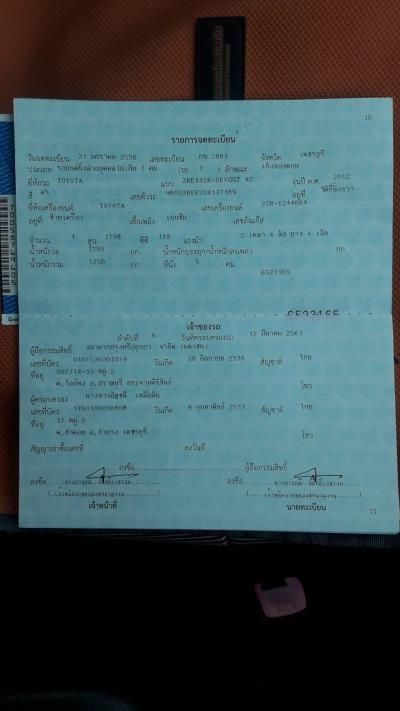 10
รายการจดทะเบียน
วันจดทะเบียน 21 มกราคม 2556 เลขทะเบียน กน 2881 จังหวัด เพชรบุรี
ประเภท รถยนต์นั่งส่วนบุคคลไม่เกิน 7 คน (รย. 1 ) ลักษณะ เก๋งสองตอน
ยี่ห้อรถ TOYOTA แบบ รุ่นปี ค.ศ. 2012
สี ดำ เลขตัวรถ อยู่ที่
ยี่ห้อเครื่องยนต์ TOYOTA เลขเครื่องยนต์ 2ZR-X244664
อยู่ที่ ซ้ายเครื่อง เชื้อเพลิง เบนซิน เลขถังแก๊ส
จำนวน 4 สูบ 1798 ซีซี 139 แรงม้า 2 เพลา 4 ล้อ ยาง 4 เส้น
น้ำหนักรถ 1250 กก. น้ำหนักบรรทุก/น้ำหนักลงเพลา กก.
น้ำหนักรวม 1250 กก. ที่นั่ง 5 คน
6523165
6523165
เจ้าของรถ
ลำดับที่ วันที่ครอบครองรถ 12 มีนาคม 2563
ผู้ถือกรรมสิทธิ์ ธนาคารกรุงศรีอยุธยา จำกัด (มหาชน)
เลขที่บัตร 0107536001079 วันเกิด 28 กันยายน 2536 สัญชาติ ไทย
ที่อยู่ 502/14-15 หมู่ 2
ต.วังก์พง อ.ปราณบุรี ประจวบคีรีขันธ์ โทร
ผู้ครอบครอง
เลขที่บัตร 1760100056808 วันเกิด 8 กุมภาพันธ์ 2531 สัญชาติ ไทย
ที่อยู่ 17 หมู่ 2
เพชรบุรี โทร
สัญญาเช่าซื้อเลขที่ ลงวันที่
ลงชื่อ ผู้ถือกรรมสิทธิ์
ลงชื่อ ลงชื่อ
เจ้าหน้าที่ นายทะเบียน
11